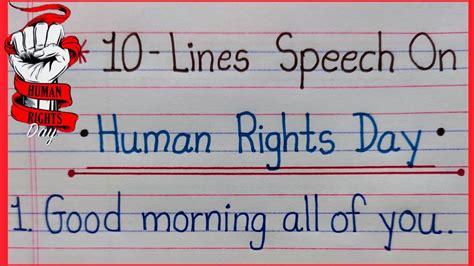 * 10-Lines Speech On
• Human Rights Day •
1. Good morning all of you.
HUMAN
RIGHTS
Day